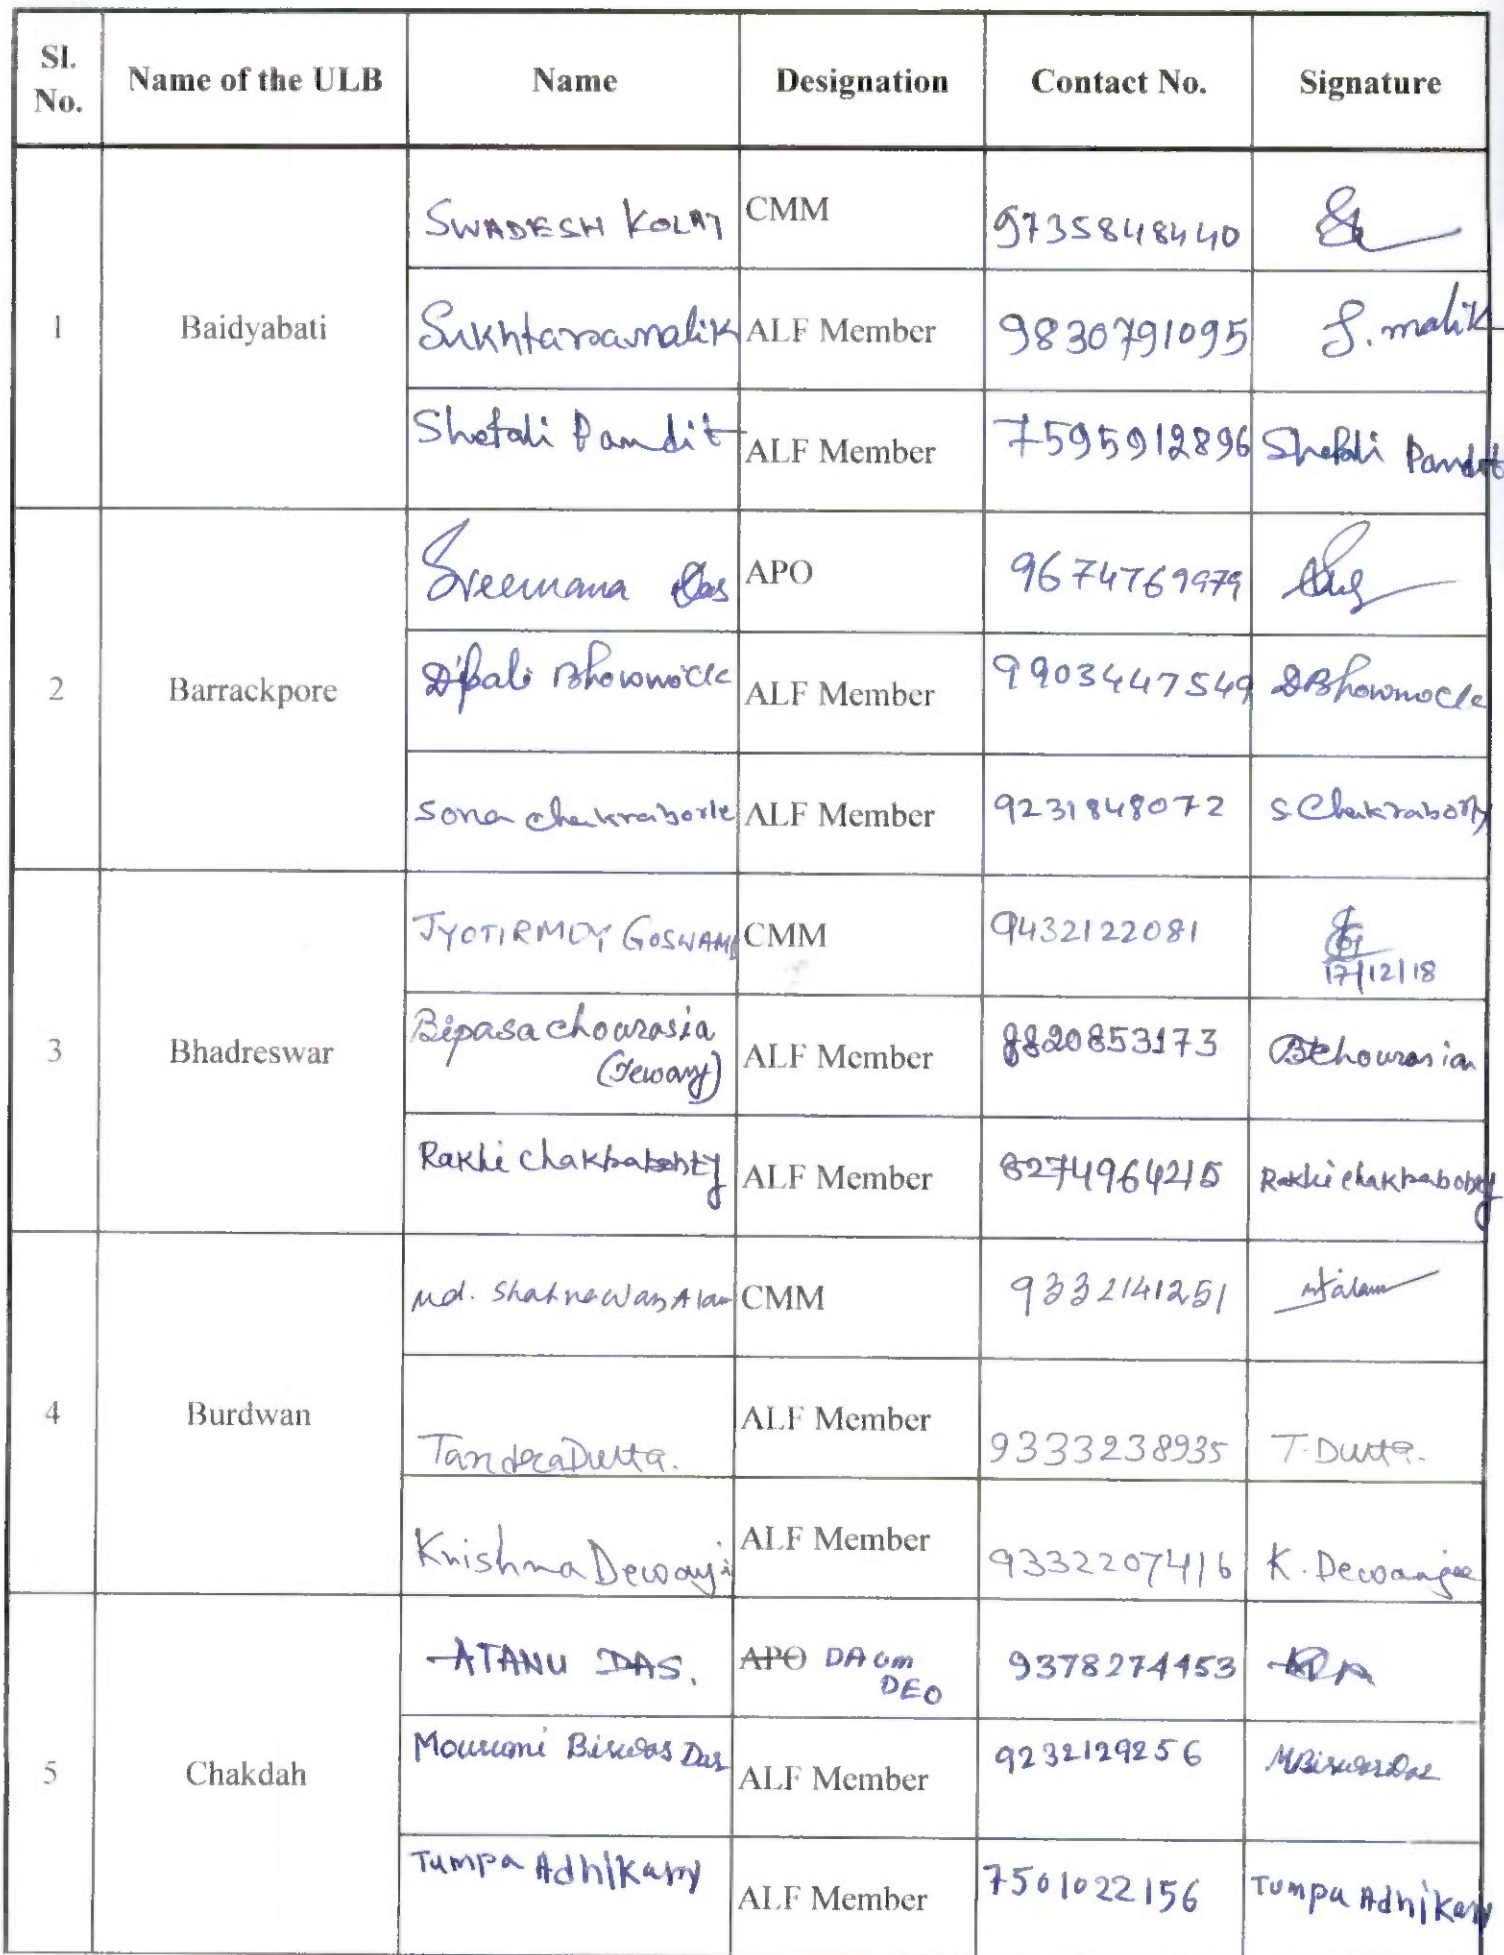 Sl. No. Name of the ULB Name Designation Contact No. Signature
1 Baidyabati
SWADESH KOLAY CMM 9735848440
Sukhtara malik ALF Member 9830791095 S. malik
Shefali Pandit ALF Member 7595912896 Shefali Pandit
2 Barrackpore
Sreemana Das APO 9674769979
Dipali Bhowmick ALF Member 9903447549 DBhowmick
Sona chakraborte ALF Member 9231848072 S Chakraborty
3 Bhadreswar
JYOTIRMOY GOSWAMI CMM 9432122081
17/12/18
Bipasa chourasia ALF Member 8820853173 BTchourasia
Rakhi chakraborty ALF Member 8274964215 Rakhi chakraborty
4 Burdwan
Md. Shahnawaz Alam CMM 9332141251
Tandra Dutta. ALF Member 9333238935 T. Dutta.
Krishna Dewanji ALF Member 9332207416 K. Dewanjee
5 Chakdah
ATANU DAS. APO DAOM 9378274453
DEO
Mousumi Biswas Das ALF Member 9232129256 MBiswas Das
Tumpa Adhikary ALF Member 7501022156 Tumpa Adhikary